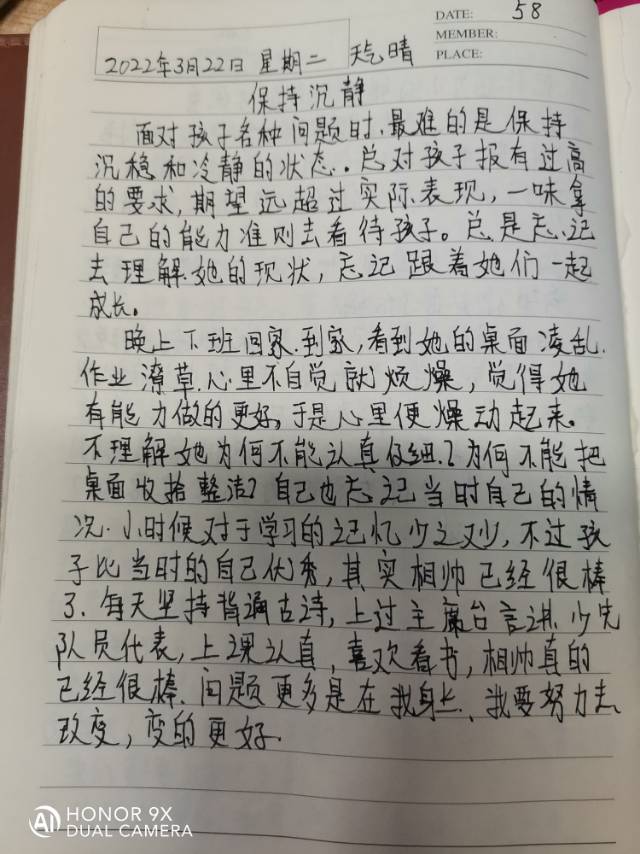 DATE: 58
MEMBER:
PLACE:
2022年3月22日 星期二 天气晴
保持沉静
面对孩子各种问题时,最难的是保持
沉稳和冷静的状态..总对孩子报有过高
的要求,期望远超过实际表现,一味拿
自己的能力准则去看待孩子。总是忘记
去理解她的现状,忘记跟着她们一起
成长。
晚上下班回家.到家,看到她的桌面凌乱.
作业潦草.心里不自觉就烦燥,觉得她
有能力做的更好,于是心里便燥动起来。
不理解她为何不能认真仔细?为何不能把
桌面收拾整洁?自己也忘记当时自己的情
况.小时候对于学习的记忆少之又少,不过孩
子比当时的自己优秀,其实相帅已经很棒
了.每天坚持背诵古诗,上过主席台言讲.少先
队员代表,上课认真,喜欢看书,相帅真的
已经很棒.问题更多是在我身上.我要努力去
改变,变的更好.
HONOR 9X
AI DUAL CAMERA